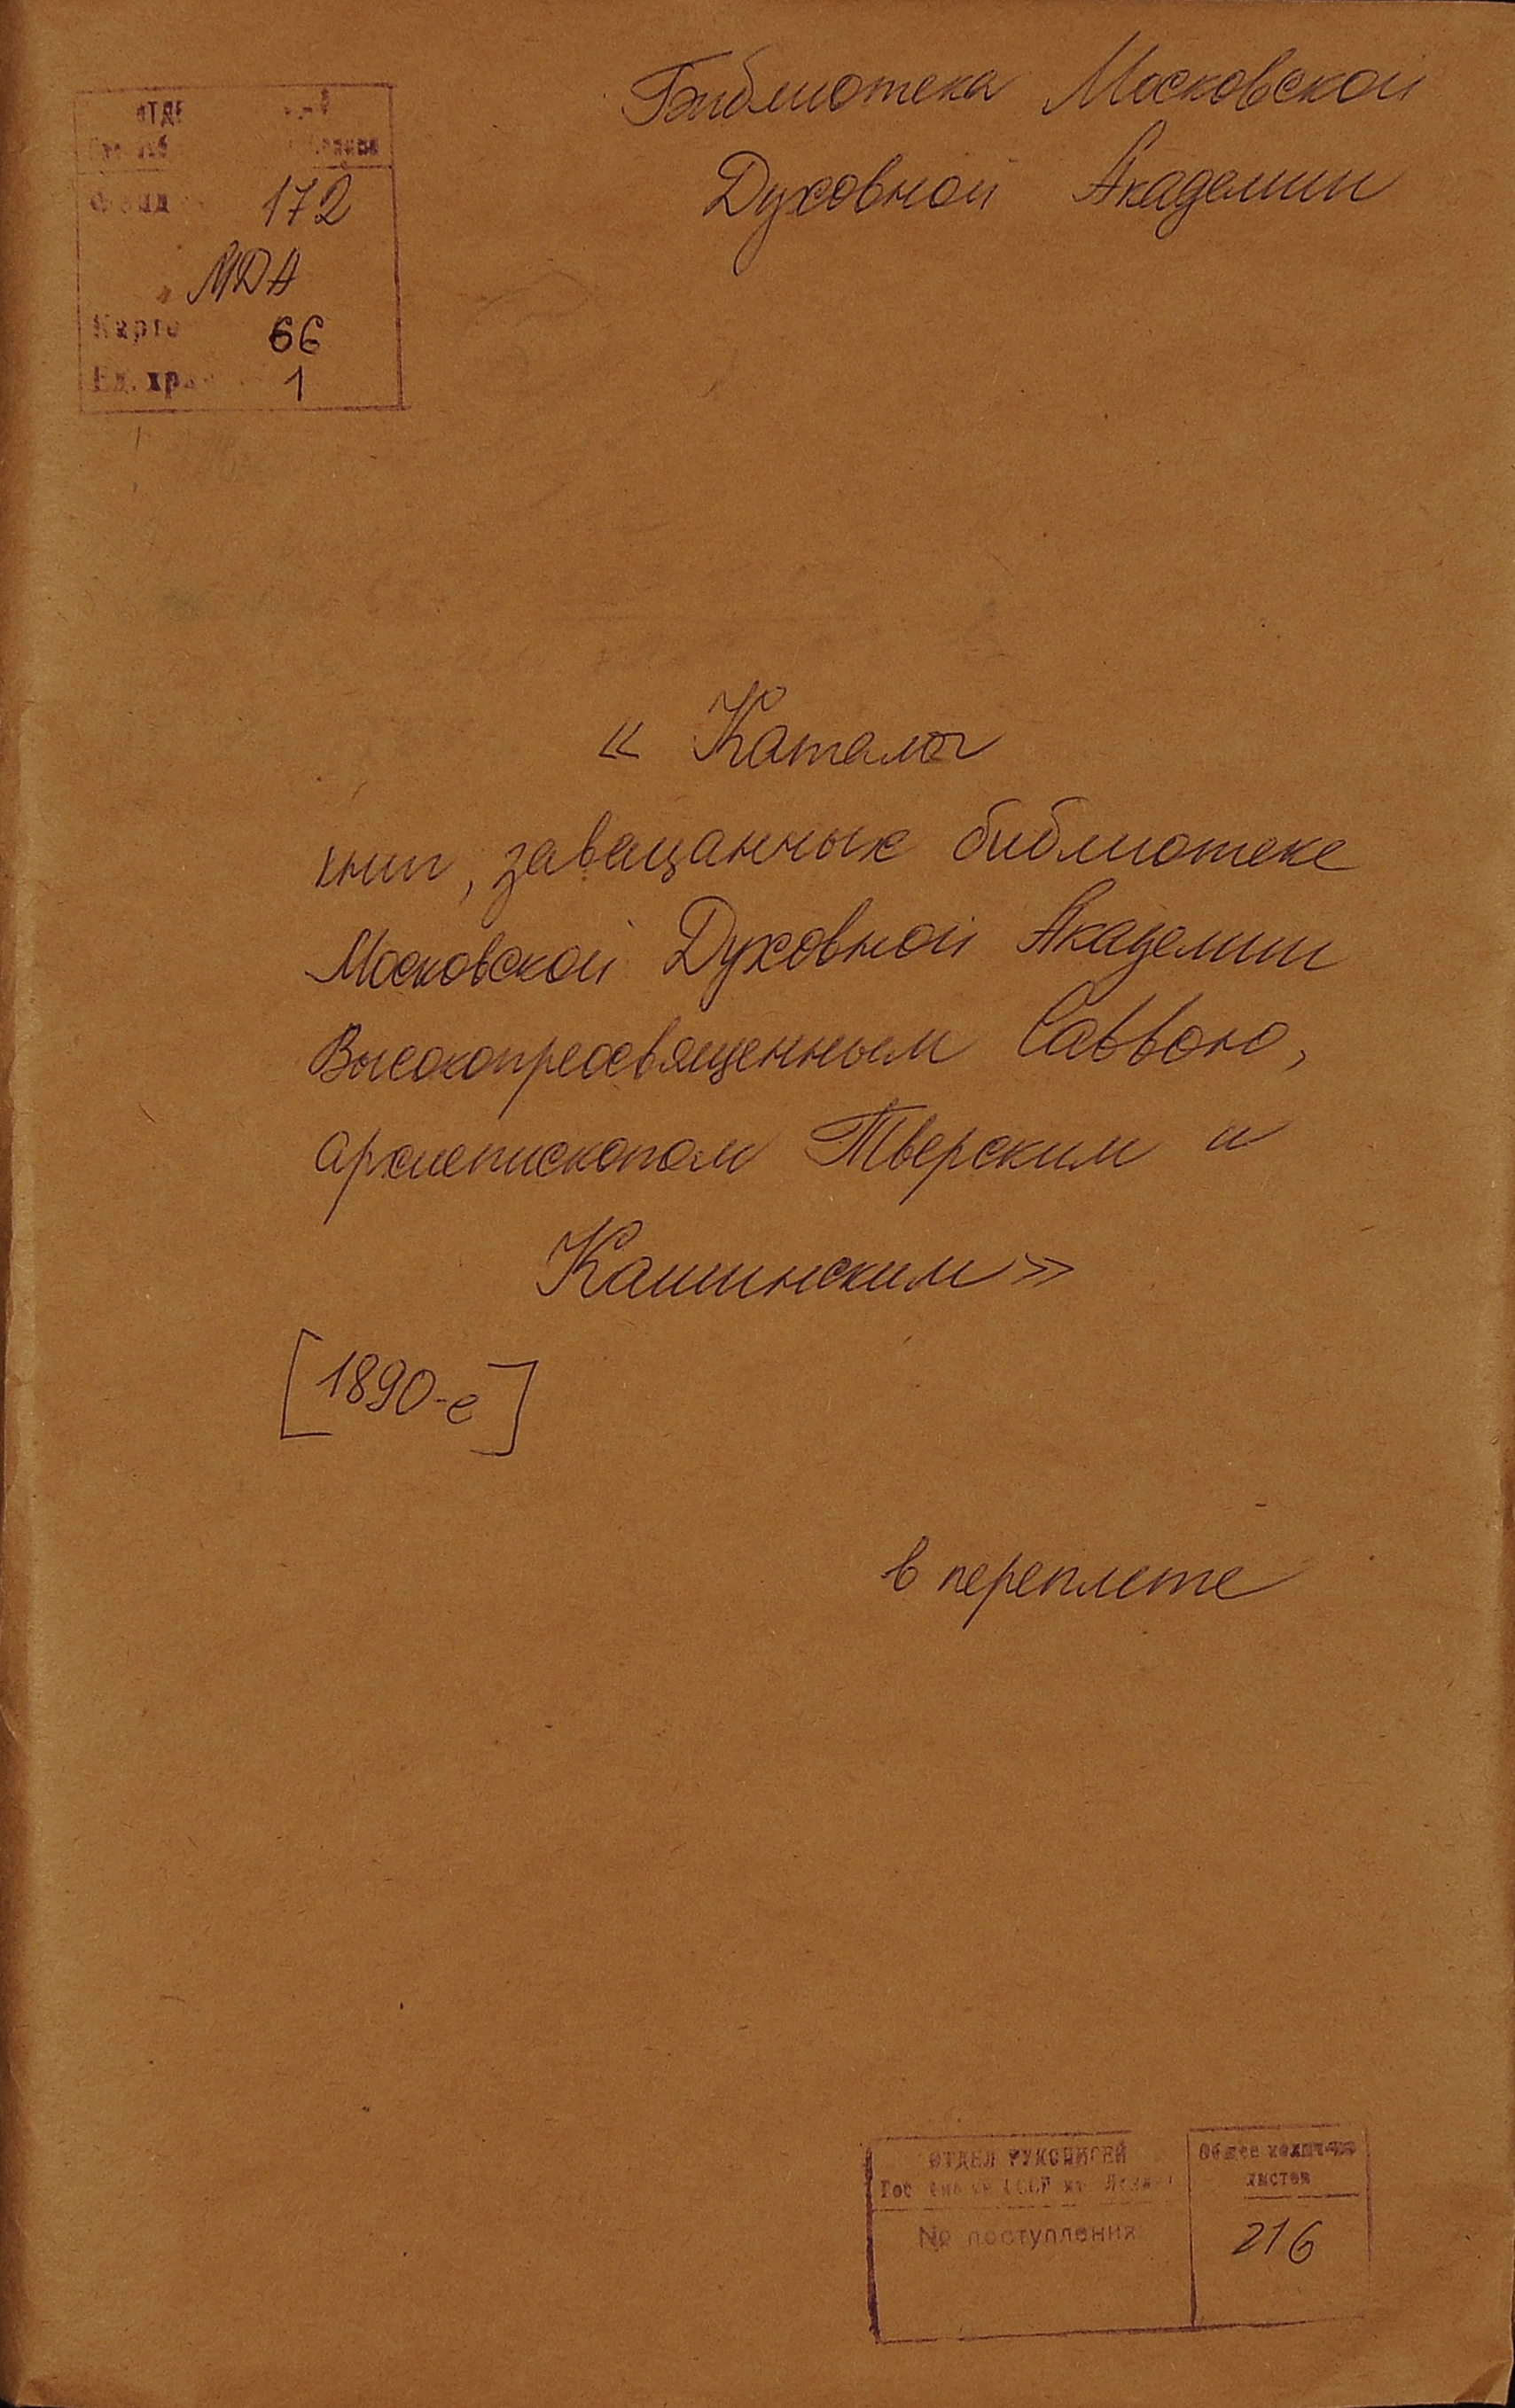 Библиотека Московской
Духовной Академии
Фонд 172
МДА
Карто 66
Ед. хран 1
« Каталог
книг, завещанных библиотеке
Московской Духовной Академии
Высокопреосвященным Саввою,
архиепископом Тверским и
Кашинским»
[1890-е]
в переплете
ОТДЕЛ РУКОПИСЕЙ
Гос СССР
№ поступления
Общее количество
листов
216